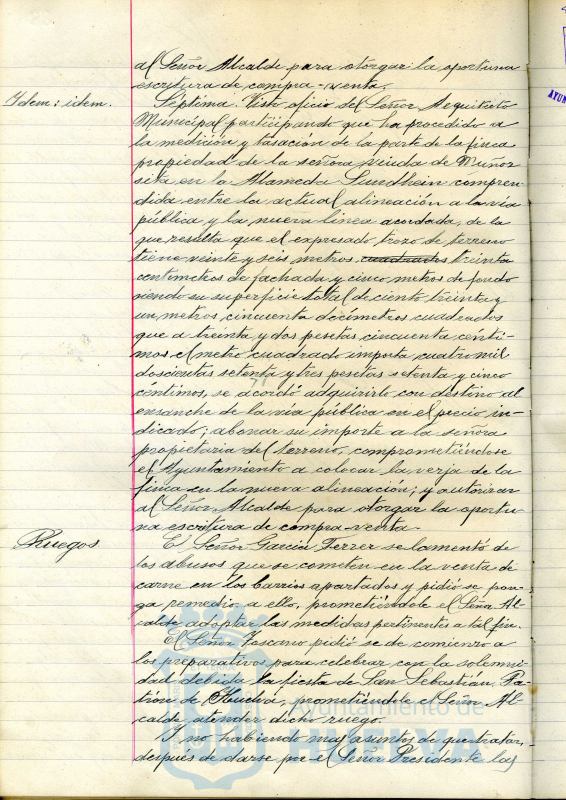 al Señor Alcalde para otorgar la oportuna
escritura de compra-venta.
Idem: idem.
Septima. Visto oficio del Señor Arquitecto
Municipal participando que ha procedido a
la medición y tasación de la parte de la finca
propiedad de la señora viuda de Muñoz
sita en la Alameda Sundhein compren-
dida entre la actual alineación a la via
pública y la nueva linea acordada, de la
que resulta que el expresado trozo de terreno
tiene veinte y seis metros cuadrados treinta
centimetros de fachada y cinco metros de fondo
siendo su superficie total de ciento treinta y
un metros, cincuenta decímetros cuadrados
que a treinta y dos pesetas cincuenta cénti-
mos el metro cuadrado importa cuatro mil
doscientas setenta y tres pesetas setenta y cinco
céntimos, se acordó adquirirlo con destino al
ensanche de la via pública en el precio in-
dicado; abonar su importe a la señora
propietaria del terreno, comprometiéndose
el Ayuntamiento a colocar la verja de la
finca en la nueva alineación; y autorizar
al Señor Alcalde para otorgar la oportu-
na escritura de compra-venta.
Ruegos
El Señor Garcia Ferrer se lamentó de
los abusos que se cometen en la venta de
carne en los barrios apartados y pidió se pon-
ga remedio a ello, prometiéndole el Señor Al-
calde adoptar las medidas pertinentes a tal fin.
El Señor Toscano pidió se de comienzo a
los preparativos para celebrar con la solemni-
dad debida la fiesta de San Sebastián, Pa-
trón de Huelva, prometiéndole el Señor Al-
calde atender dicho ruego.
Y no habiendo mas asuntos de que tratar,
después de darse por el Señor Presidente las
Ayuntamiento de
HUELVA